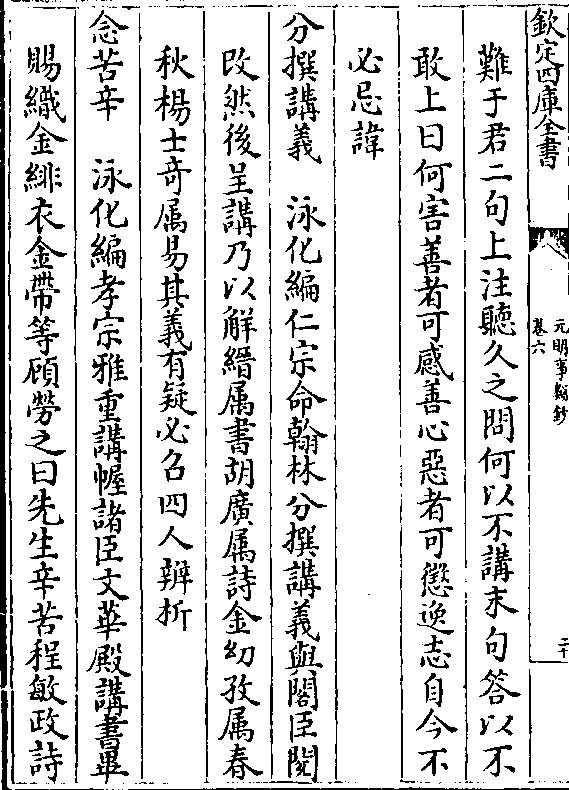 欽定四庫全書
元明事類鈔
卷六
二十
難于君二句上注聽久之問何以不講末句答以不
敢上曰何害善者可感善心惡者可懲逸志自今不
必忌諱
分撰講義 泳化編仁宗命翰林分撰講義與閣臣閱
改然後呈講乃以解縉属書胡廣属詩金幼孜属春
秋楊士奇属易其義有疑必召四人辨折
念苦辛 泳化編孝宗雅重講幄諸臣文華殿講書畢
賜織金緋衣金帶等顧勞之曰先生辛苦程敏政詩